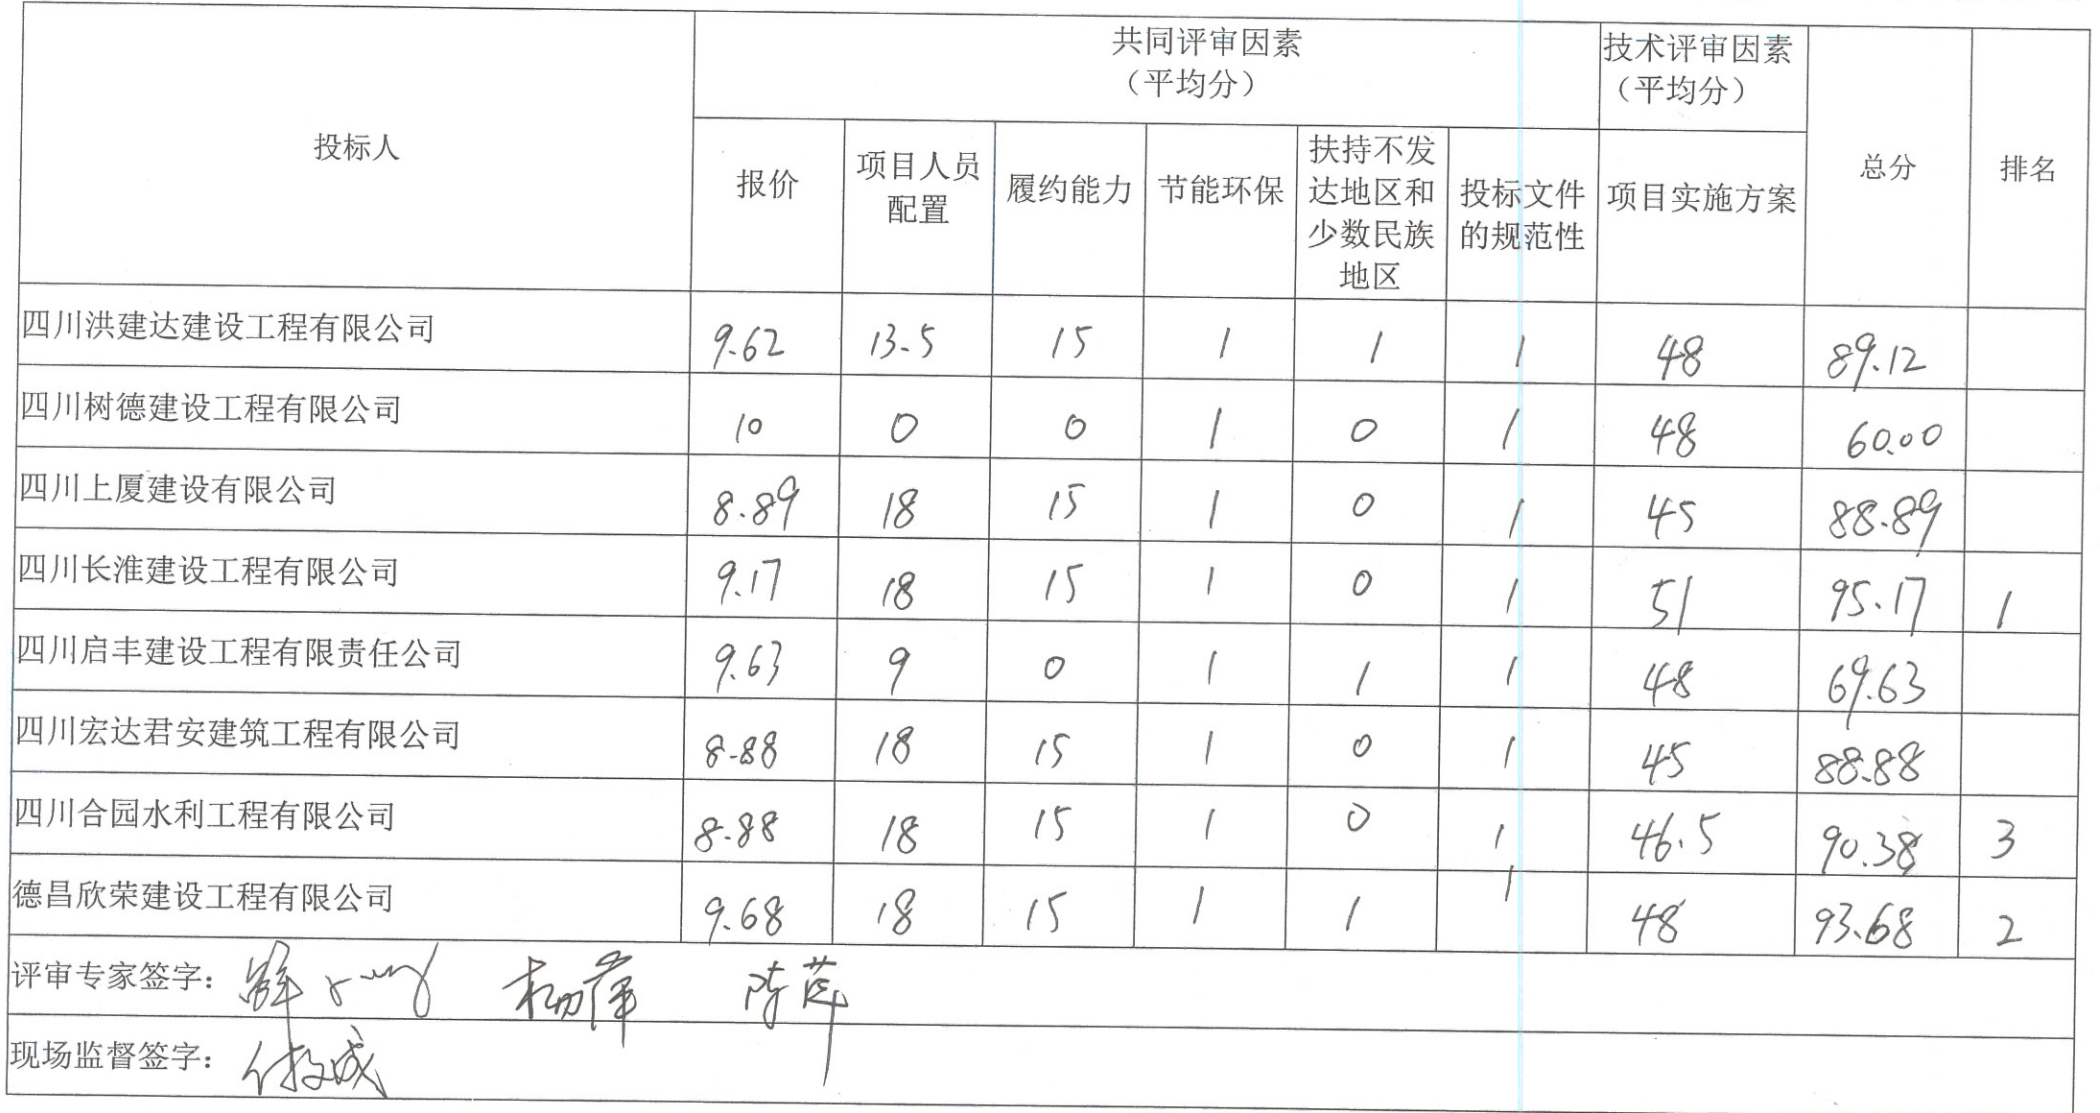 共同评审因素
（平均分）
技术评审因素
（平均分）
投标人
报价
项目人员
配置
履约能力
节能环保
扶持不发
达地区和
少数民族
地区
投标文件
的规范性
项目实施方案
总分
排名
四川洪建达建设工程有限公司 9.62 13.5 15 1 1 1 48 89.12
四川树德建设工程有限公司 10 0 0 1 0 1 48 60.00
四川上厦建设有限公司 8.89 18 15 1 0 1 45 88.89
四川长淮建设工程有限公司 9.17 18 15 1 0 1 51 95.17 1
四川启丰建设工程有限责任公司 9.63 9 0 1 1 1 48 69.63
四川宏达君安建筑工程有限公司 8.88 18 15 1 0 1 45 88.88
四川合园水利工程有限公司 8.88 18 15 1 0 1 46.5 90.38 3
德昌欣荣建设工程有限公司 9.68 18 15 1 1 1 48 93.68 2
评审专家签字：
现场监督签字：